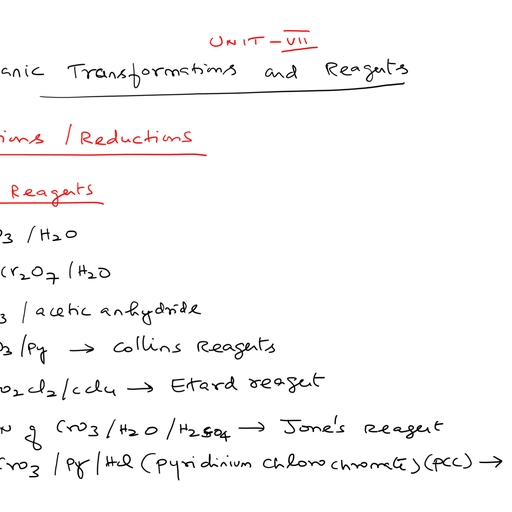 UNIT-VII
anic Transformations and Reagents
ions / Reductions
Reagents
O3 / H2O
Cr2O7 / H2O
3 / acetic anhydride
O3 / Py → Collins Reagents
O2Cl2 / CCl4 → Etard reagent
N of CrO3 / H2O / H2SO4 → Jone's Reagent
CrO3 / Py / HCl (pyridinium chlorochromate) (PCC) →